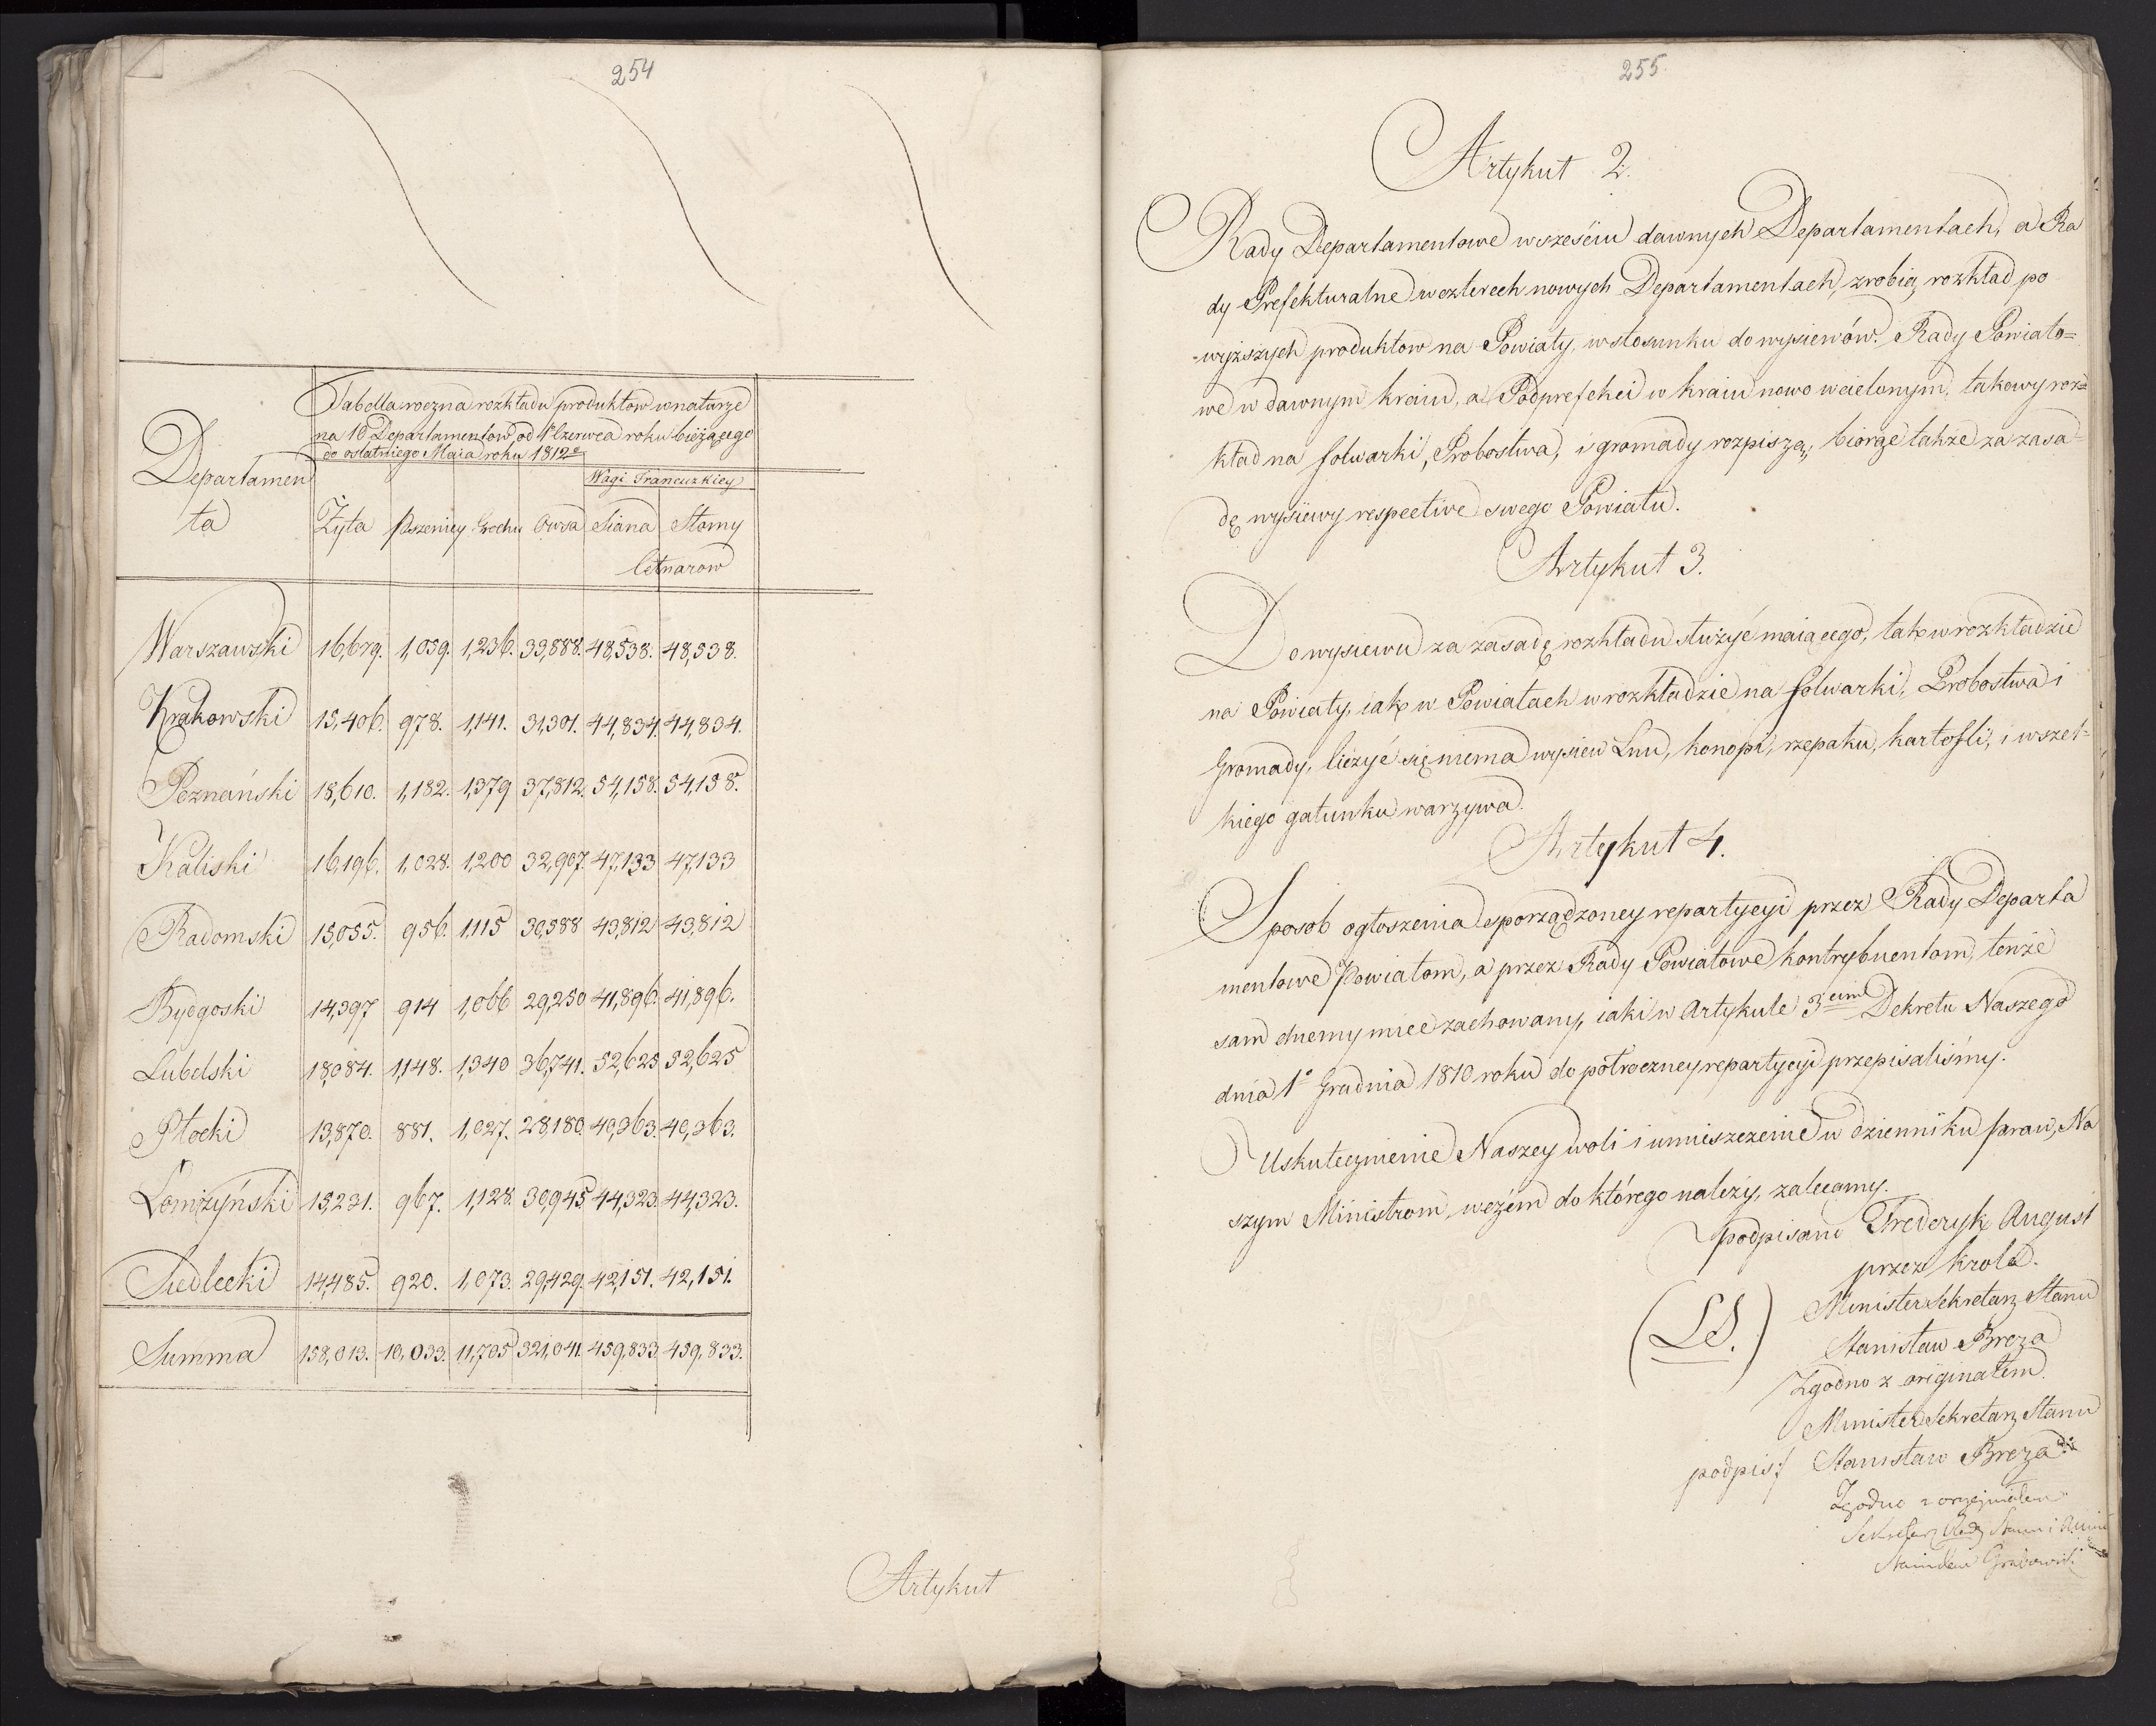 254
Departamen
ta
Tabella roczna rozkładu produktow w naturze
na 10 Departamentow od 1° Czerwca roku bieżącego
do ostatniego Maia roku 1812°
Wagi Francuzkiey
Żyta Pszenicy Grochu Owsa Siana Słomy
Cetnarow
Warszawski 16,679. 1,059. 1,236. 33,888. 48,538. 48,538.
Krakowski 15,406. 978. 1,141. 31,301. 44,834. 44,834.
Poznański 18,610. 1,182. 1,379 37,812. 54,158. 54,158.
Kaliski 16,196. 1,028. 1,200 32,907. 47,133 47,133
Radomski 15,055. 956. 1,115 30,588 43,812 43,812
Bydgoski 14,397 914 1,066 29,250 41,896. 41,896.
Lubelski 18,084. 1,148. 1,340 36,741. 52,625 52,625
Płocki 13,870. 881. 1,027. 28,180. 40,363. 40,363.
Łomżyński 15,231. 967. 1,128. 30,945 44,323. 44,323.
Siedlecki 14,485. 920. 1,073. 29,429. 42,151. 42,151.
Summa 158,013. 10,033. 11,705 321,041. 459,833. 459,833.
Artykuł
255
Artykuł 2.
Rady Departamentowe w sześciu dawnych Departamentach, a Ra
dy Prefekturalne w czterech nowych Departamentach, zrobią rozkład po
-wyższych produktow na Powiaty, w stosunku do wysiewów. Rady Powiato=
we w dawnym kraiu, a Podprefekci w kraiu nowo wcielonym, takowy roz=
kład na folwarki, Probostwa, i gromady rozpiszą, biorąc także za zasa=
dę wysiewy respective swego Powiatu.
Artykuł 3.
Do wysiewu za zasadę rozkładu służyć maiącego, tak w rozkładzie
na Powiaty, iak w Powiatach w rozkładzie na folwarki, Probostwa i
Gromady, liczyć się niema wysiew Lnu, konopi, rzepaku, kartofli, i wszel=
kiego gatunku warzywa.
Artykuł 4.
Sposob ogłoszenia sporządzoney repartycyi przez Rady Departa
mentowe Powiatom, a przez Rady Powiatowe kontrybuentom, tenże
sam chcemy mieć zachowany, iaki w Artykule 3cim Dekretu Naszego
dnia 1° Grudnia 1810 roku do połroczney repartycyi przepisaliśmy.
Uskutecznienie Naszey woli i umieszczenie w dzienniku praw, Na
szym Ministrom, w czém do którego należy, zalecamy.
podpisano Frederyk August
przez krola.
(LS.) Minister Sekretarz Stanu
Stanisław Breza
Zgodno z originałem
Minister Sekretarz Stanu
podpis: Stanisław Breza
Zgodno z oryginałem
Sekretarz Rady Stanu i
Stanisław Grabowski